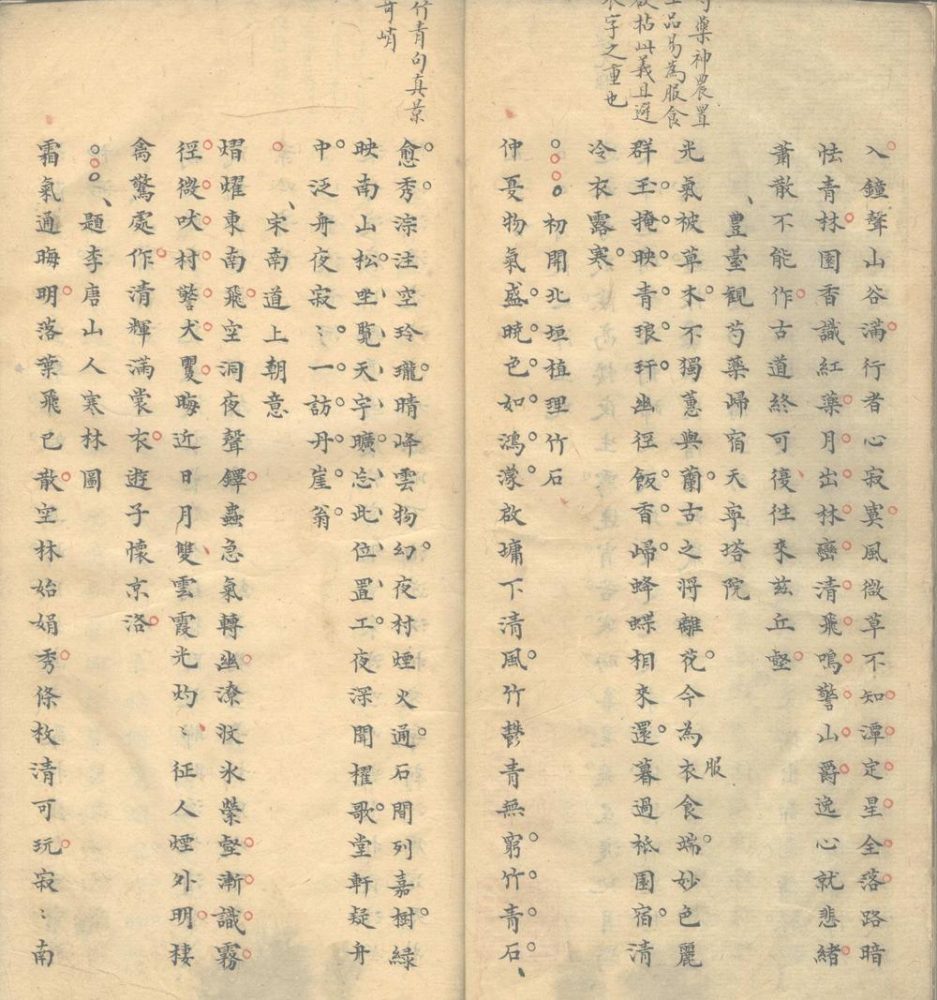 芍藥神農置
上品易為服食
欲拈此義且避
衣字之重也
入鐘聲山谷滿行者心寂寞風微草不知潭定星全落路暗
怯青林園香識紅藥月出林巒清飛鳴警山爵逸心就悲緒
蕭散不能作古道終可復往來茲丘壑
豊臺観芍藥歸宿天寧塔院
光氣被草木不獨蕙與蘭古之將離花今為衣食端妙色麗
服
群玉掩映青琅玕幽徑飯香歸蜂蝶相來還暮過祗園宿清
冷衣露寒
初開北垣植理竹石
仲憂物氣盛曉色如鴻濛啟墉下清風竹鬱青無窮竹青石
竹青句真景
奇峭
愈秀淙注空玲瓏晴峰雲物幻夜村煙火通石間列嘉樹緑
映南山松坐覧天宇曠忘此位置工夜深聞櫂歌堂軒疑舟
中泛舟夜寂〻一訪丹崖翁
宋南道上朝意
熠燿東南飛空洞夜聲鐸蟲急氣轉幽潦汊氷縈壑漸識霧
徑微吠村警犬矍晦近日月雙雲霞光灼〻征人煙外明棲
禽驚處作清輝滿裳衣遊子懷京洛
題李唐山人寒林圖
霜氣通晦明落葉飛已散空林始娟秀條枚清可玩寂〻南